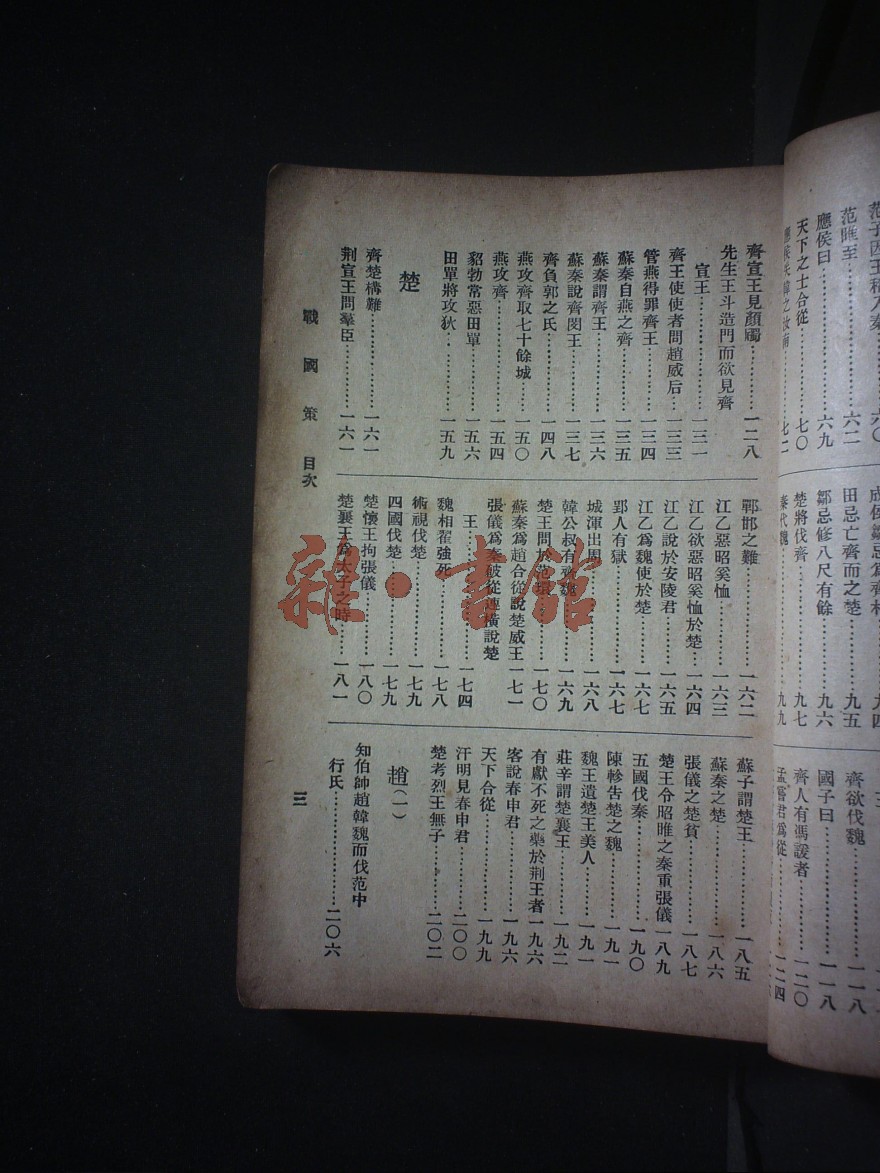 范睢至……六二
應侯曰……六九
天下之士合從……七〇
田忌亡齊而之楚……九五
鄒忌修八尺有餘……九六
楚將伐齊……九七
秦伐魏……九九
齊欲伐魏……一一八
國子曰……一一八
齊人有馮諼者……一二〇
孟嘗君爲從……一二四
齊宣王見顏斶……一二八
先生王斗造門而欲見齊
宣王……一三一
齊王使使者問趙威后……一三三
管燕得罪齊王……一三四
蘇秦自燕之齊……一三五
蘇秦謂齊王……一三六
蘇秦說齊閔王……一三七
齊負郭之民……一四八
燕攻齊取七十餘城……一五〇
燕攻齊……一五四
貂勃常惡田單……一五六
田單將攻狄……一五九
楚
齊楚構難……一六一
荆宣王問羣臣……一六一
邯鄲之難……一六二
江乙惡昭奚恤……一六三
江乙欲惡昭奚恤於楚……一六四
江乙說於安陵君……一六五
江乙爲魏使於楚……一六七
郢人有獄……一六七
城渾出周……一六八
韓公叔有齊魏……一六九
楚王問於范環……一七〇
蘇秦爲趙合從說楚威王……一七一
張儀爲秦破從連橫說楚
王……一七四
魏相翟強死……一七八
術視伐楚……一七九
四國伐楚……一七九
楚懷王拘張儀……一八〇
楚襄王爲太子之時……一八一
蘇子謂楚王……一八五
蘇秦之楚……一八六
張儀之楚貧……一八七
楚王令昭睢之秦重張儀……一八九
五國伐秦……一九〇
陳軫告楚之魏……一九一
魏王遺楚王美人……一九一
莊辛謂楚襄王……一九二
有獻不死之藥於荆王者……一九六
客說春申君……一九六
天下合從……一九九
汗明見春申君……二〇〇
楚考烈王無子……二〇二
趙(一)
知伯帥趙韓魏而伐范中
行氏……二〇六
戰國策 目次
三
雜·書館